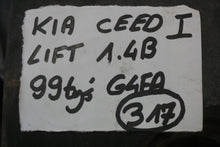 KIA CEED I
LIFT 1.4B
99tyś G4FA
317